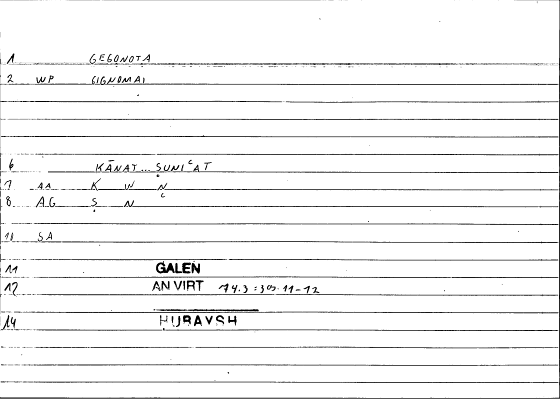 1 GEGONOTA
2 WP GIGNOMAI
6 KĀNAT... ṢUNIʿAT
7 AA K W N
8 AG Ṣ N ʿ
10 SA
11 GALEN
12 AN VIRT 74.3 : 309.11-12
14 ḤUBAYSH